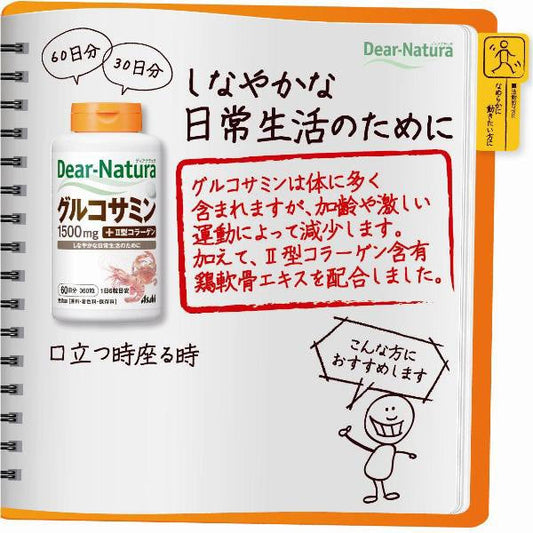 60日分
30日分
Dear-Natura
ディアナチュラ
しなやかな
日常生活のために
なめらかに
動きたい方に
グルコサミンは体に多く
含まれますが、加齢や激しい
運動によって減少します。
加えて、Ⅱ型コラーゲン含有
鶏軟骨エキスを配合しました。
Dear-Natura
グルコサミン
1500mg +Ⅱ型コラーゲン
しなやかな日常生活のために
60日分 360粒 1日6粒目安
Asahi
口立つ時座る時
こんな方に
おすすめします